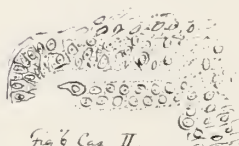 Fig 6 Cas II